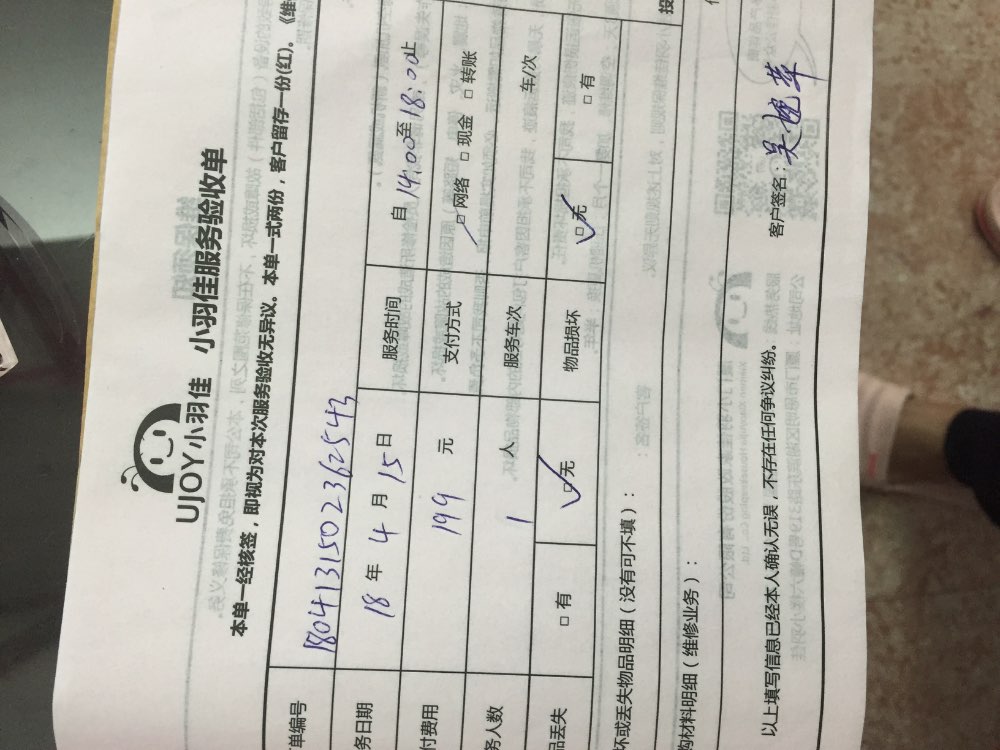 UJOY小羽佳 小羽佳服务验收单
本单一经核签，即视为对本次服务验收无异议。本单一式两份，客户留存一份(红)。《维
单编号 1804131502362543
务日期 18 年 4 月 15 日 服务时间 自 14:00 至 18:00 止
付费用 199 元 支付方式 网络 现金 转账
务人数 1 人 服务车次 车/次
品丢失 有 无 物品损坏 无 有
坏或丢失物品明细（没有可不填）：
购材料明细（维修业务）：
以上填写信息已经本人确认无误，不存在任何争议纠纷。 客户签名：